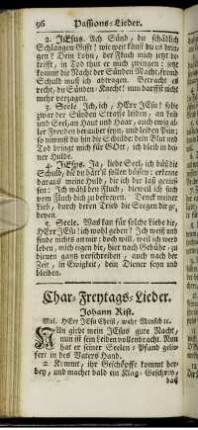 96 Passions-Lieder.
2. JEsus. Ach Sünd, du schädlich
Schlangen Gifft! wie weit kanst du es brin-
gen? Dein Lohn, der Fluch mich jetzt be-
trifft, in Tod thut er mich zwingen. Jetzt
kommt die Nacht der Sünden Macht, fremd
Schuld muß ich abtragen. Betracht es
recht, du Sünden-Knecht! nun darffst nicht
mehr verzagen.
3. Seele. Ich, ich, HErr JEsu! solte
zwar der Sünden Straffe leiden, an Leib
und Seel, an Haut und Haar, auch ewig al-
ler Freuden beraubet seyn, und leiden Pein;
so nimmst du hin die Schuld: dein Blut und
Tod bringt mich für GOtt, ich bleib in dei-
ner Hulde.
4. JEsus. Ja, liebe Seel, ich büß die
Schuld, die du hätt'st sollen büssen: erkenne
daraus meine Huld, die ich dir laß geniess-
sen: Ich wähl den Fluch, dieweil ich such
vom Fluch dich zu befreyen. Denk meiner
Lieb, durch deren Trieb die Segen dir ge-
deyen.
5. Seele. Was kan für solche Liebe dir,
HErr JEsu! ich wohl geben? Ich weiß und
finde nichts an mir: doch will, weil ich werd
leben, mich eigen dir, hier nach Gebühr, zu
dienen gantz verschreiben, auch nach der
Zeit, in Ewigkeit, dein Diener seyn und
bleiben.
Char-Freytags-Lieder.
Johann Rist.
Mel. HErr JEsu Christ, wahr Mensch ꝛc.
NUn giebt mein JEsus gute Nacht,
nun ist sein Leiden vollenbracht. Nun
hat er seiner Seelen-Pfand gelie-
fert in des Vaters Hand.
2. Kommt, ihr Geschöpffe kommt her-
bey, und machet bald ein Klag-Geschrey,
das